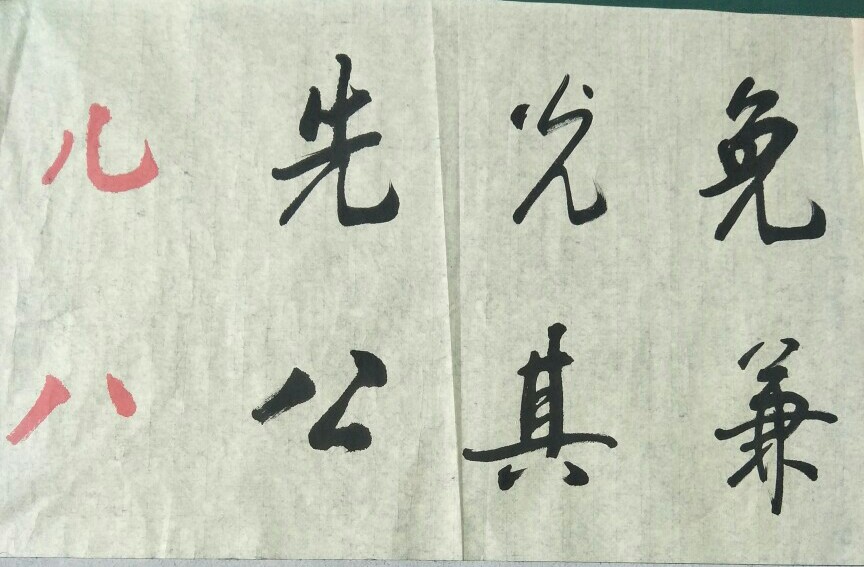 儿先光免
八公其兼